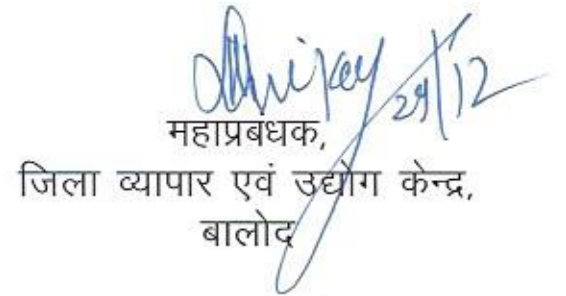 महाप्रबंधक,
जिला व्यापार एवं उद्योग केन्द्र,
बालोद